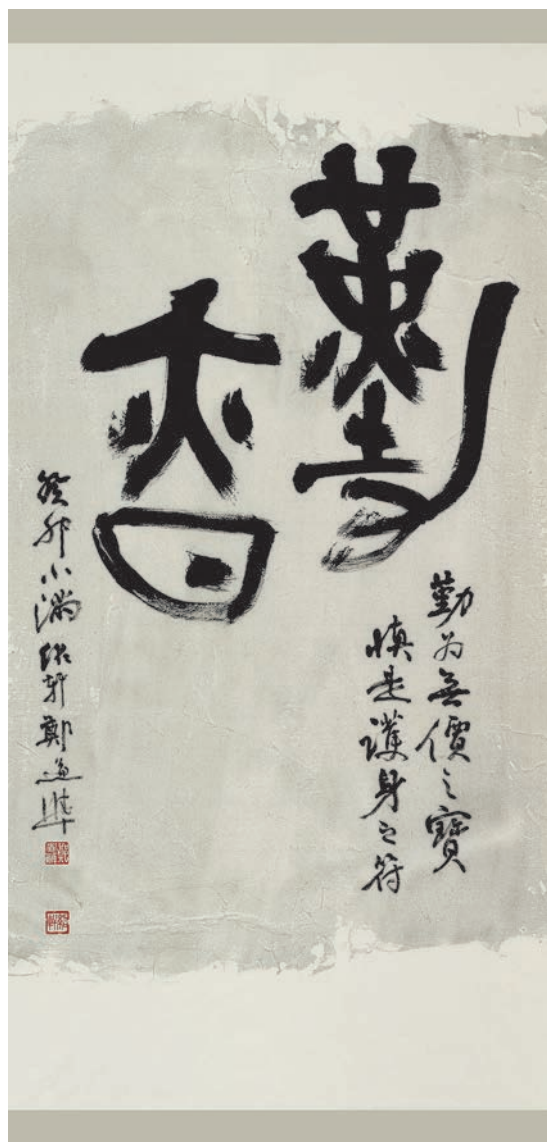 勤
昚
勤為無價之寶
慎是護身之符
癸卯小滿 軒鄭